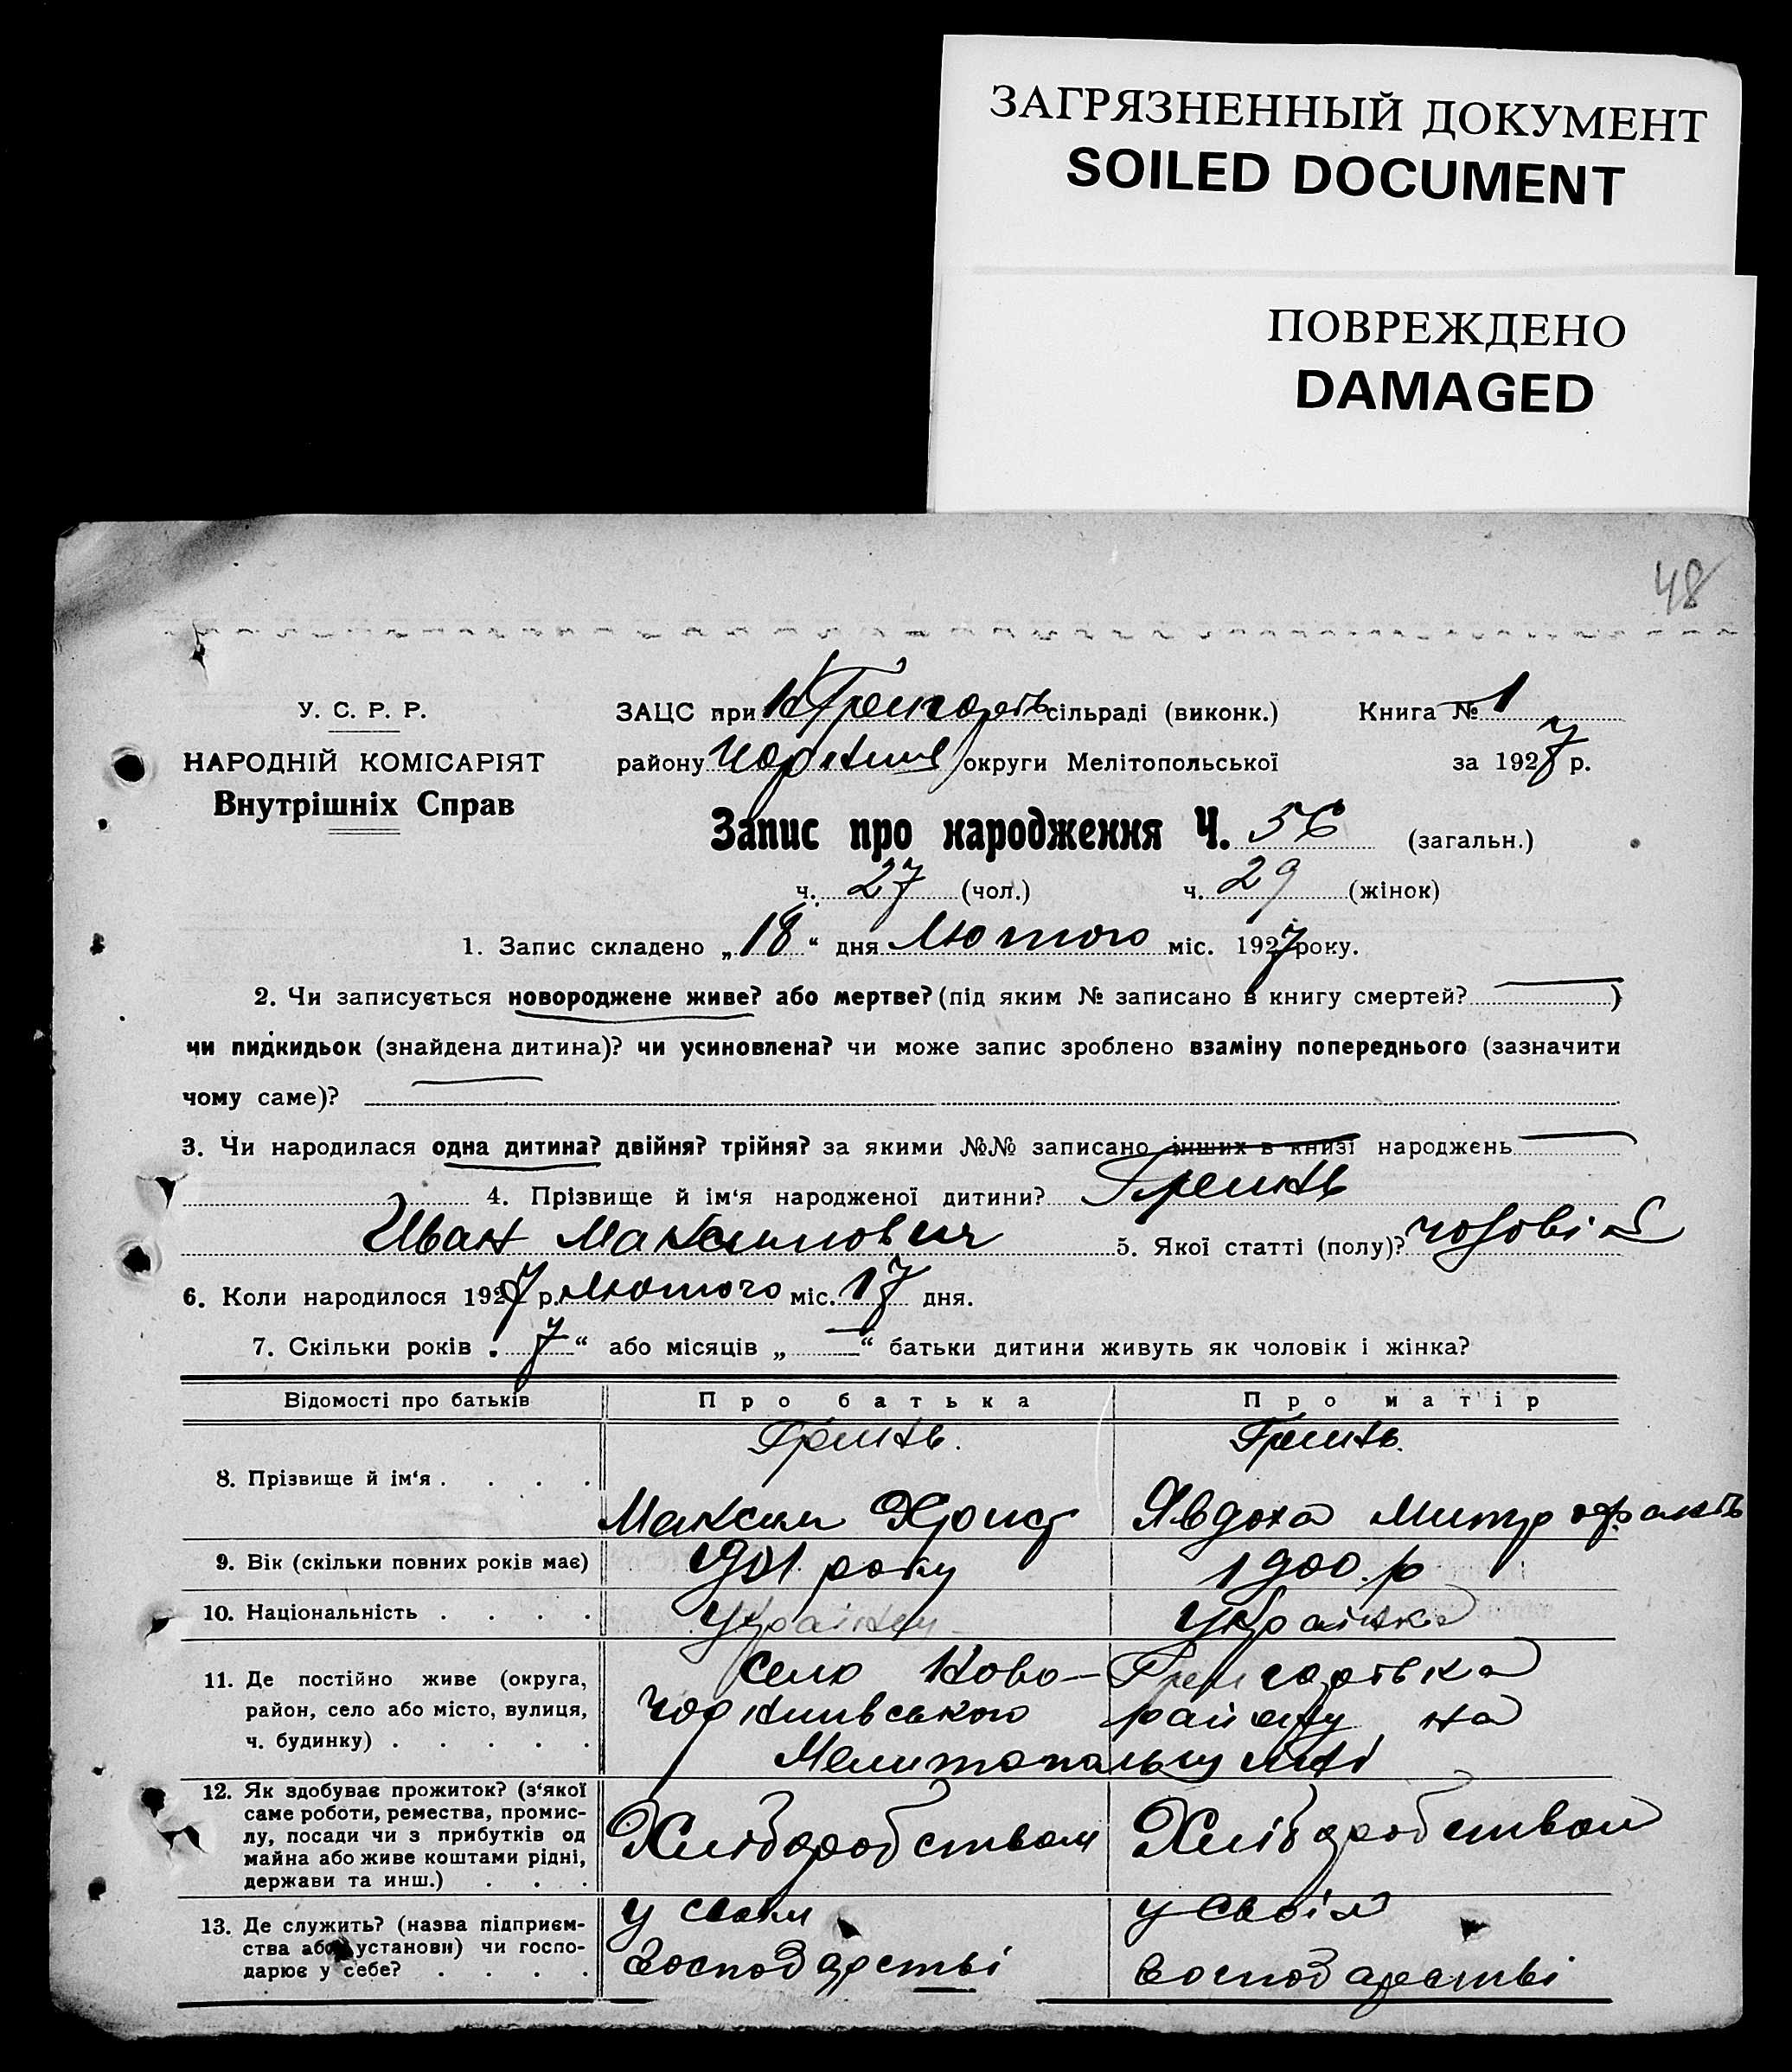 ЗАГРЯЗНЕННЫЙ ДОКУМЕНТ
SOILED DOCUMENT
ПОВРЕЖДЕНО
DAMAGED
48
У. С. Р. Р.
НАРОДНІЙ КОМІСАРІЯТ
Внутрішніх Справ
ЗАЦС при сільраді (виконк.) Книга № 1
району округи Мелітопольської за 1927 р.
Запис про народження Ч. 56 (загальн.)
ч. 27 (чол.) ч. 29 (жінок)
1. Запис складено „18“ дня Лютого міс. 1927 року.
2. Чи записується новороджене живе? або мертве? (під яким № записано в книгу смертей? — )
чи пидкидьок (знайдена дитина)? чи усиновлена? чи може запис зроблено взаміну попереднього (зазначити
чому саме)? —
3. Чи народилася одна дитина? двійня? трійня? за якими №№ записано інших в книзі народжень —
4. Прізвище й ім‘я народженої дитини?
Иван Максимович 5. Якої статті (полу)? чоловік
6. Коли народилося 1927 р. Лютого міс. 17 дня.
7. Скільки років „7“ або місяців „—“ батьки дитини живуть як чоловік і жінка?
Відомості про батьків Про батька Про матір
8. Прізвище й ім‘я . . . .
Максим Христ Явдоха Митрофанів
9. Вік (скільки повних років має) 1901 року 1900.р
10. Національність . . . . Українец Українка
11. Де постійно живе (округа,
район, село або місто, вулиця,
ч. будинку) . . . . .
село Ново-
району на
12. Як здобуває прожиток? (з‘якої
саме роботи, ремества, промис-
лу, посади чи з прибутків од
майна або живе коштами рідні,
держави та инш.) . . .
Хліборобством Хліборобством
13. Де служить? (назва підприєм-
ства або установи) чи госпо-
дарює у себе? . . . .
у своім у своім
господарстві господарстві